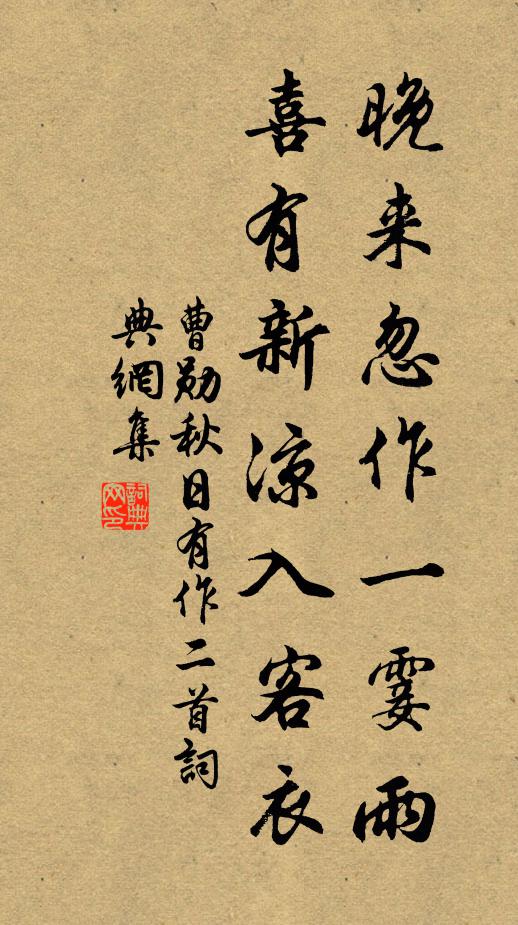 晚来忽作一霎雨
喜有新凉入客衣
曹勋秋日有作二首詞
典網集
詞典网印